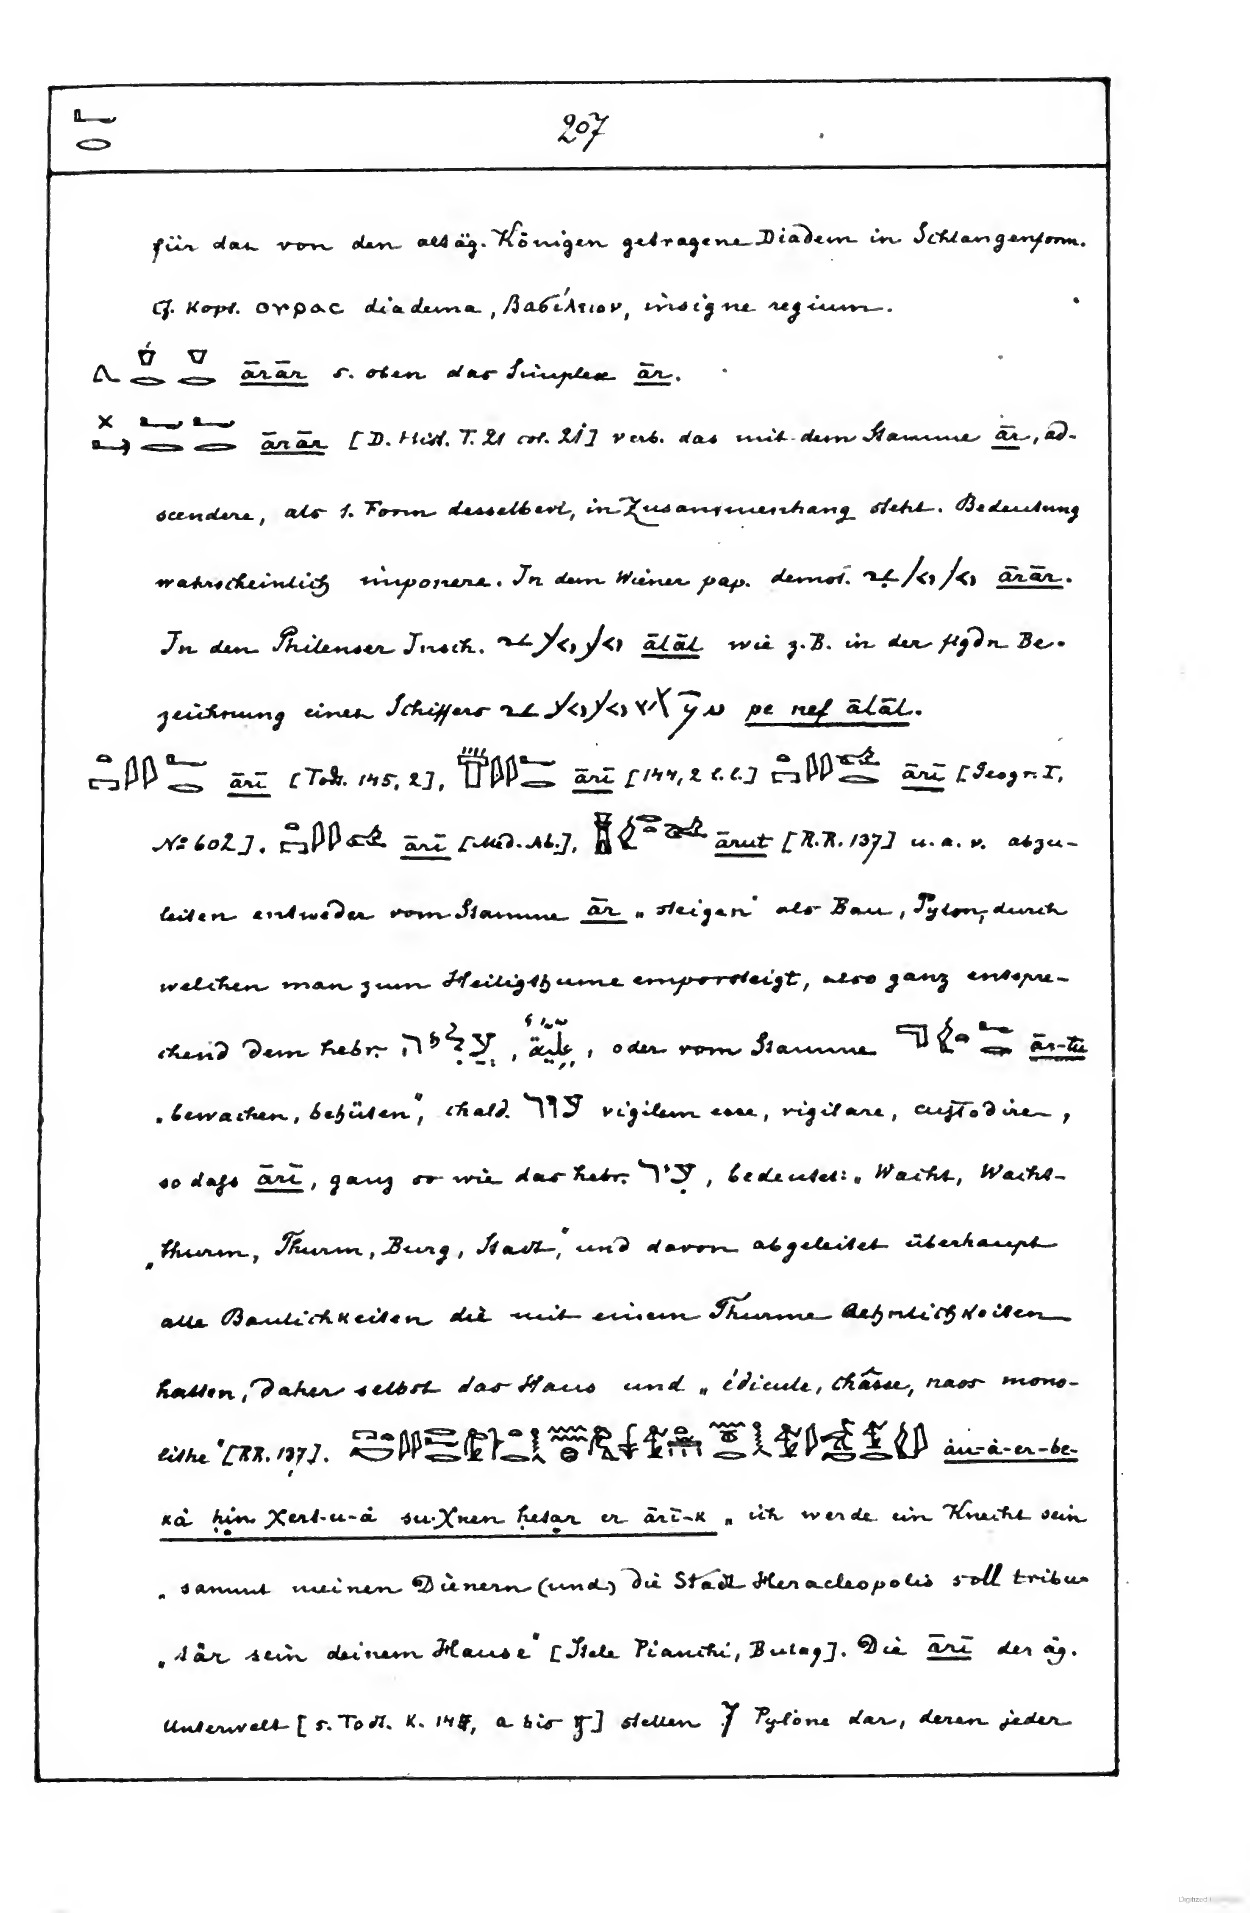 207
für das von den altäg. Königen getragene Diadem in Schlangenform.
Cf. Kopt. ⲟⲩⲣⲁⲥ diadema, βασίλειον, insigne regium.
ārār s. oben das Simplex ār.
ārār [D. Hist. T. 21 col. 21] verb. das mit dem Stamme ār, ad-
scendere, als 1. Form desselben, in Zusammenhang steht. Bedeutung
wahrscheinlich imponere. In dem Wiener pap. demot. ārār.
In den Philenser Insch. ālāl wie z.B. in der flgdn Be-
zeichnung eines Schiffers pe nef ālāl.
ārī [Todt. 145, 2], ārī [144, 2 l.l.] ārī [Geogr. I,
No 602]. ārī [Med. Ab.], ārut [R.R. 137] u.a.v. abzu-
leiten entweder vom Stamme ār „steigen" als Bau, Pylon, durch
welchen man zum Heiligthume emporsteigt, also ganz entspre-
chend dem hebr. עליה, oder vom Stamme ār-tu
„bewachen, behüten", chald. עור vigilem esse, vigilare, custodire,
so dass ārī, ganz so wie das hebr. עיר, bedeutet: „Wacht, Wacht-
„thurm, Thurm, Burg, Stadt", und davon abgeleitet überhaupt
alle Baulichkeiten die mit einem Thurme Aehnlichkeiten
hatten, daher selbst das Haus und „édicule, châsse, naos mono-
lithe" [RR. 137]. áu-á-er-be-
ká ḥin χert-u-á su-χnen ḥetar er ārī-k „ich werde ein Knecht sein
„sammt meinen Dienern (und) die Stadt Heracleopolis soll tribu-
„tär sein deinem Hause" [Stele Pianchi, Bulaq]. Die ārī der äg.
Unterwelt [s. Todt. K. a bis g] stellen 7 Pylône dar, deren jeder